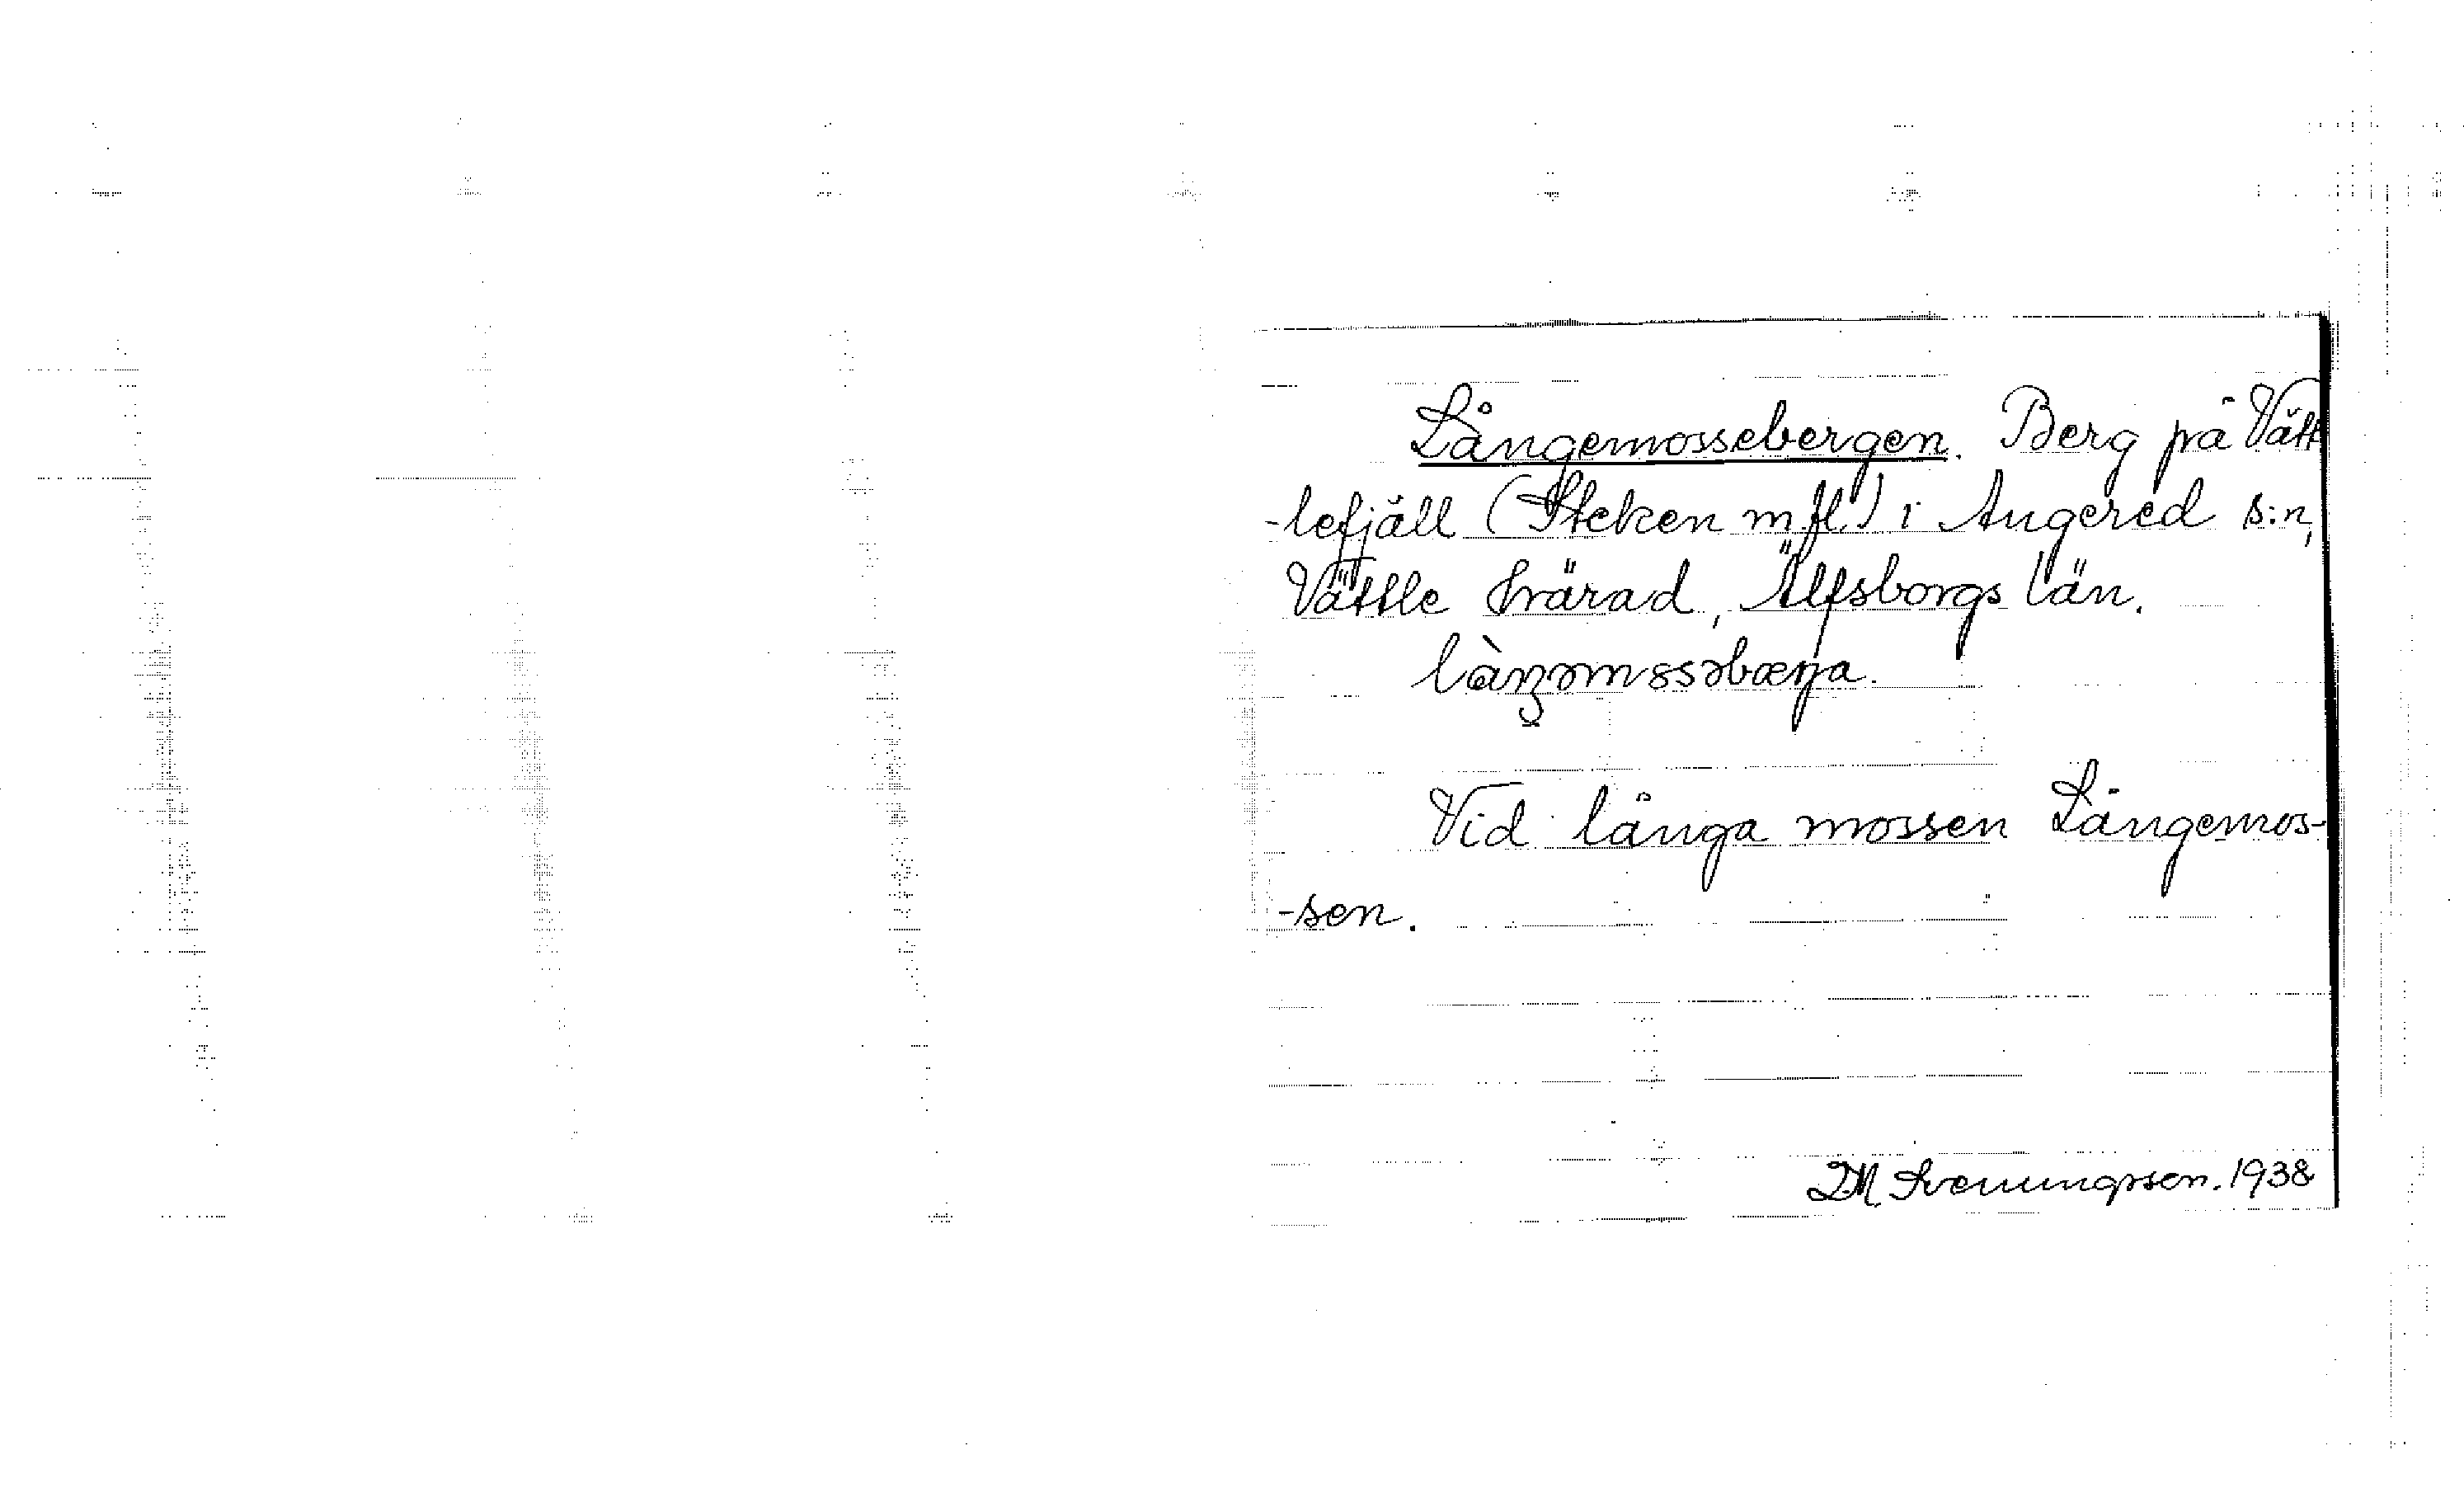 Långemossebergen. Berg på Vätt
-lefjäll (Steken m.fl.) i Angered s:n,
Vättle härad, Älfsborgs län.
Vid långa mossen Långemos-
-sen.
1938